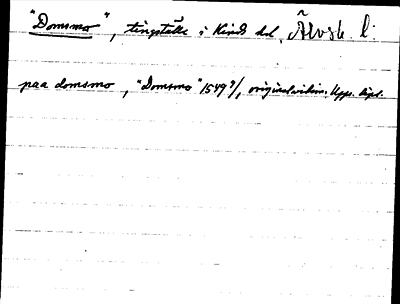 "Domsmo", tingställe i Kinds hd, Älvsb. l:
paa domsmo, "Domsmo" 1549 9/, originalunion. Upps. bibl.